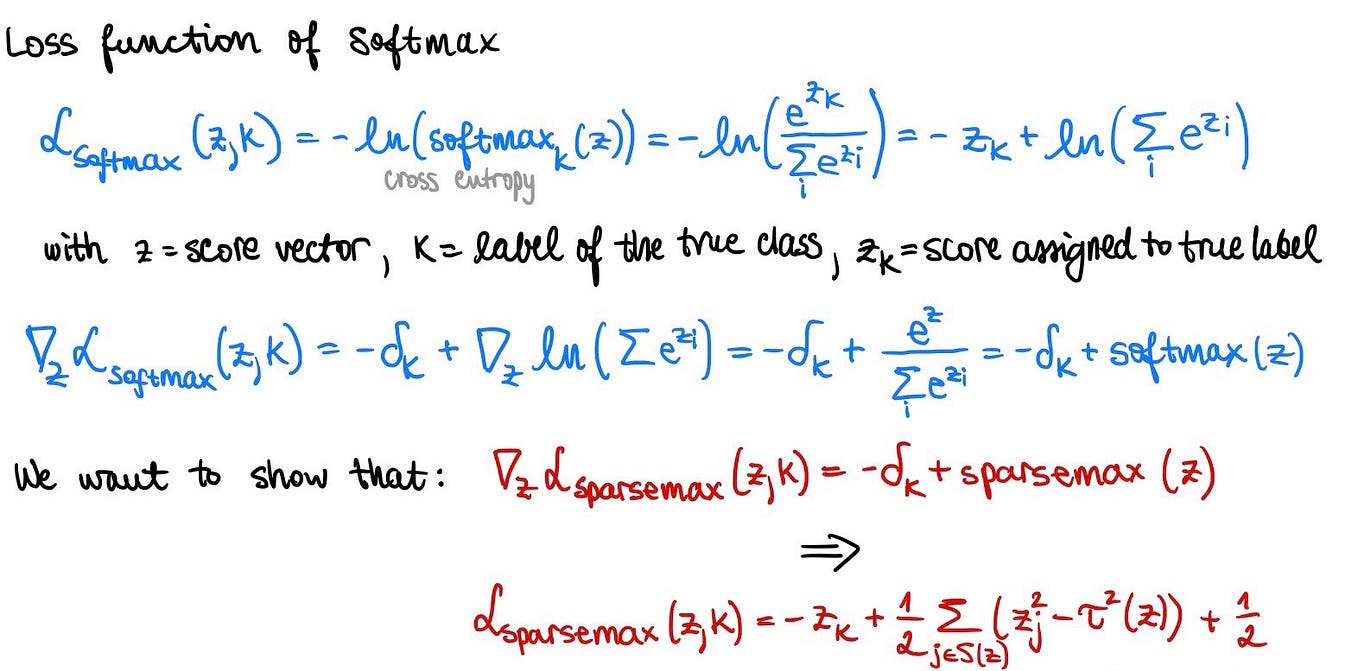 Loss function of Softmax
ℒ_softmax (z,K) = - ln(softmax_k (z)) = - ln(e^{z_K} / Σ_i e^{z_i}) = - z_K + ln(Σ_i e^{z_i})
cross entropy
with z = score vector, K = label of the true class, z_K = score assigned to true label
∇_z ℒ_softmax (z,K) = -δ_K + ∇_z ln(Σ e^{z_i}) = -δ_K + e^z / Σ_i e^{z_i} = -δ_K + softmax(z)
We want to show that: ∇_z ℒ_sparsemax (z,K) = -δ_K + sparsemax (z)
⇒
ℒ_sparsemax (z,K) = - z_K + 1/2 Σ_{j∈S(z)} (z_j^2 - τ^2(z)) + 1/2